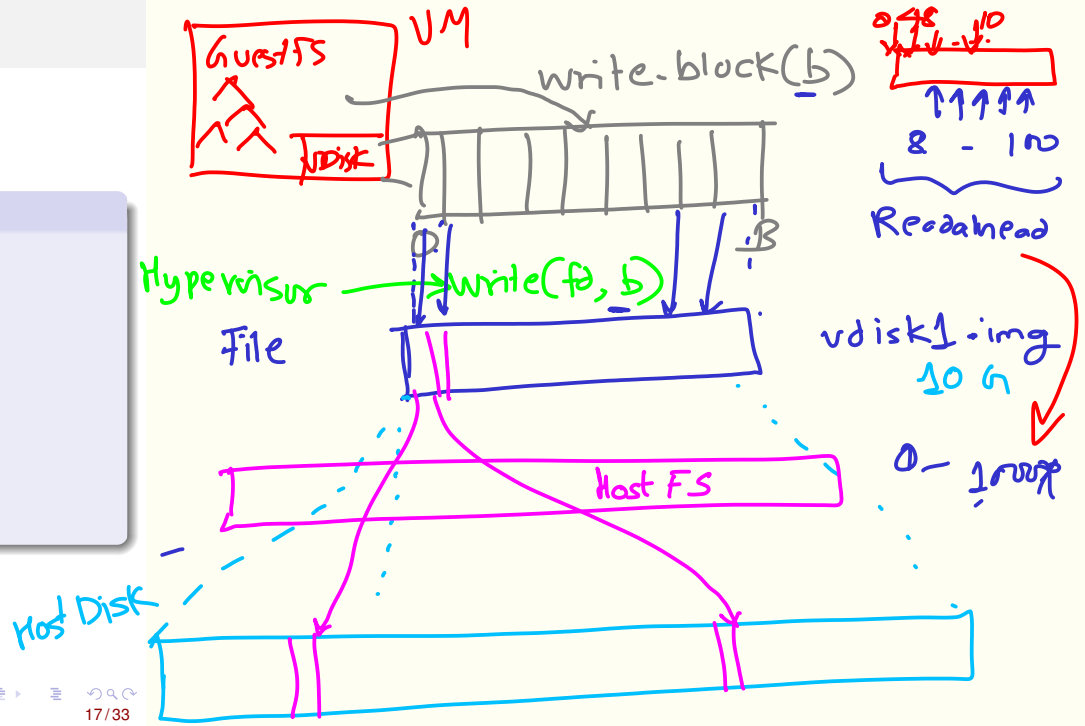 VM
GuestFS
vDisk
write-block(b)
0 48 - - 10
8 - 100
Readahead
0
B
Hypervisor
write(fd, b)
File
vdisk1.img
10 G
Host FS
0 -
Host Disk
17/33